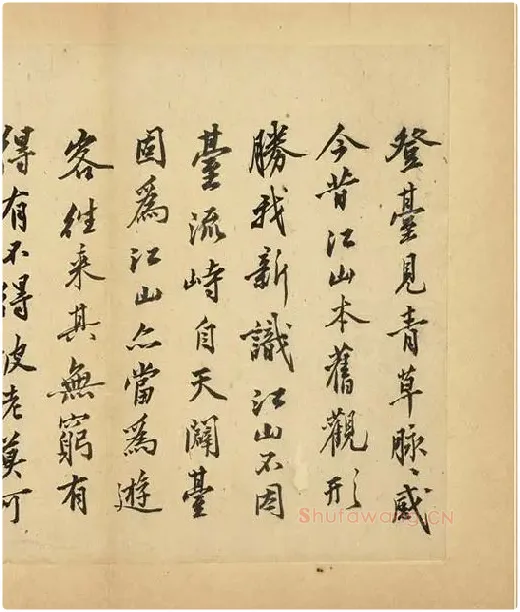 登臺見青草脉〻感
今昔江山本舊觀形
勝我新識江山不因
臺流峙自天闢臺
因爲江山亦當爲遊
客往来其無窮有
得有不得彼老莫可
Shufawang.CN